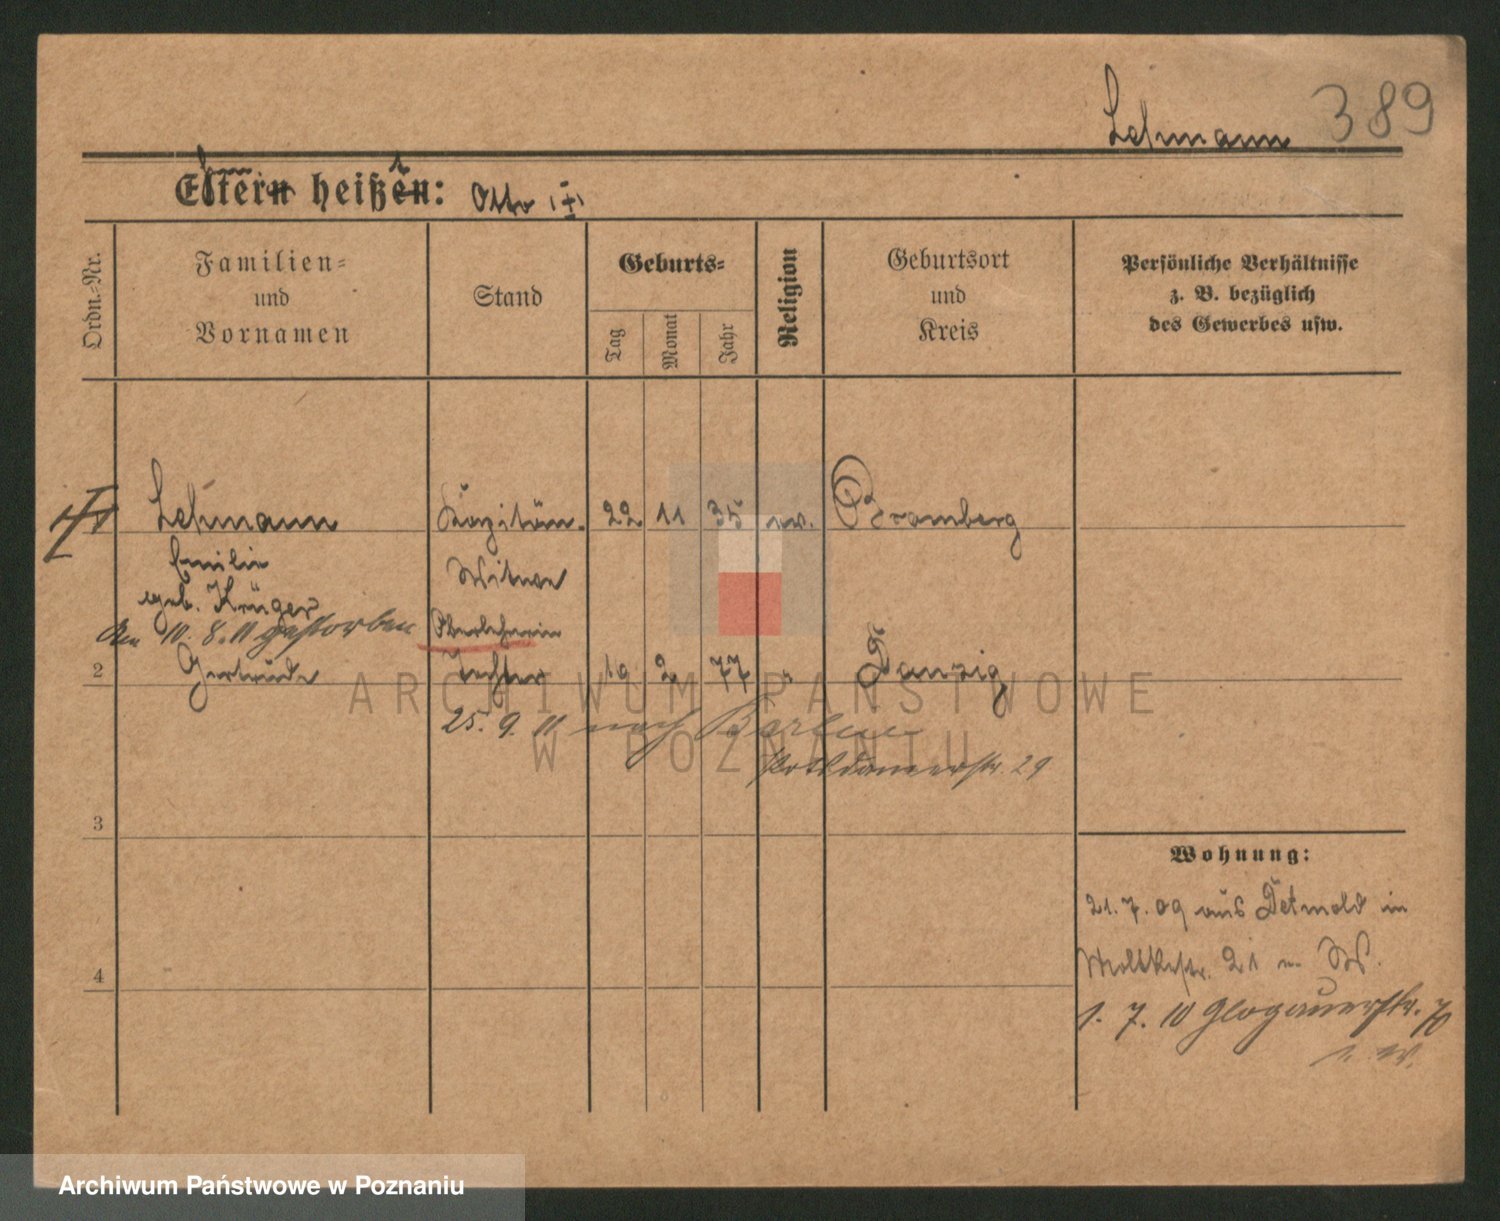 Lehmann 389
Eltern heißen: Otto (+)
Ordn.-Nr.
Familien-
und
Vornamen
Stand
Geburts-
Tag
Monat
Jahr
Religion
Geburtsort
und
Kreis
Persönliche Verhältnisse
z. B. bezüglich
des Gewerbes usw.
Lehmann Kapitän- 22 11 35 ev. Bromberg
Emilie Witwe
geb. Krüger
den 10. 8. 11 gestorben Oberlehrerin
2 Gertrude Tochter 19 2 77 " Danzig
25. 9. 11 nach Berlin
Potsdamerstr. 29
3
4
Wohnung:
21. 7. 09 aus Detmold in
Moltkestr. 21 W.
1. 7. 10 Glogauerstr.
ARCHIWUM PAŃSTWOWE
W POZNANIU
Archiwum Państwowe w Poznaniu